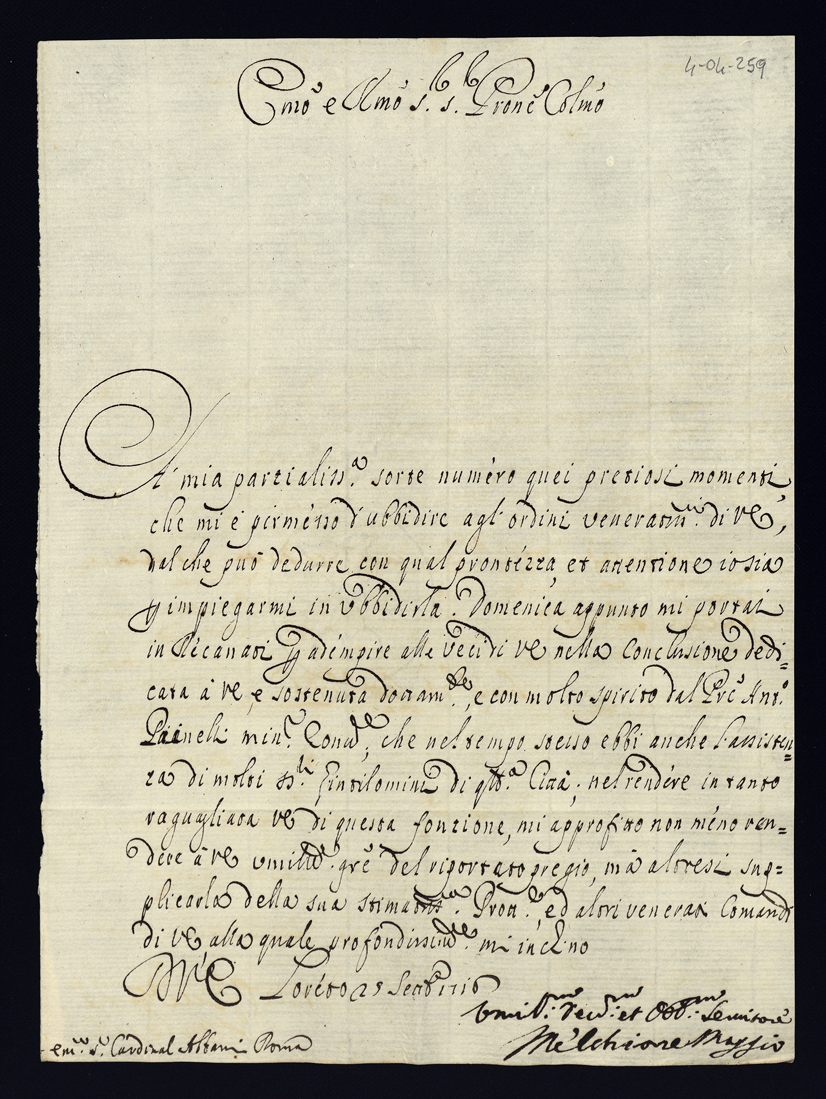 4-04-259
Emo e Rmo s.r s.r Prone Colmo
A' mia parzialiss.a sorte numero quei pretiosi momenti
che mi è permesso d'ubbidire agl'ordini veneratmi: di VE,
dal che può dedurre con qual prontezza, et attentione io sia
p impiegarmi in ubbidirla. Domenica appunto mi portai
in Recanati p adempire alle veci di VE nella Conclusione dedi=
cata à VE, e sostenuta dottam.te, e con molto spirito dal Pre Ant.o
Painelli min.r Conu.le, che nel tempo stesso ebbi anche l'assisten=
za di molti SS.ri Gintilomini di qta. Città; nel rendere intanto
raguagliata VE di questa fonzione, mi approfitto non méno ren=
dere à VE umiliss: gré del riportato pregio, mà altresi sup=
plicarla della sua stimatiss.a Pron.e, ed altri venerati Comandi
di VE alla quale profondissim.te mi inclino
DVE Loréto 25 Settb 1716
Vmiliss.mo Deu.mo et Obb.mo Seruitore
Mélchiorre Maggio
em.o s.r Cardinal Albani Roma